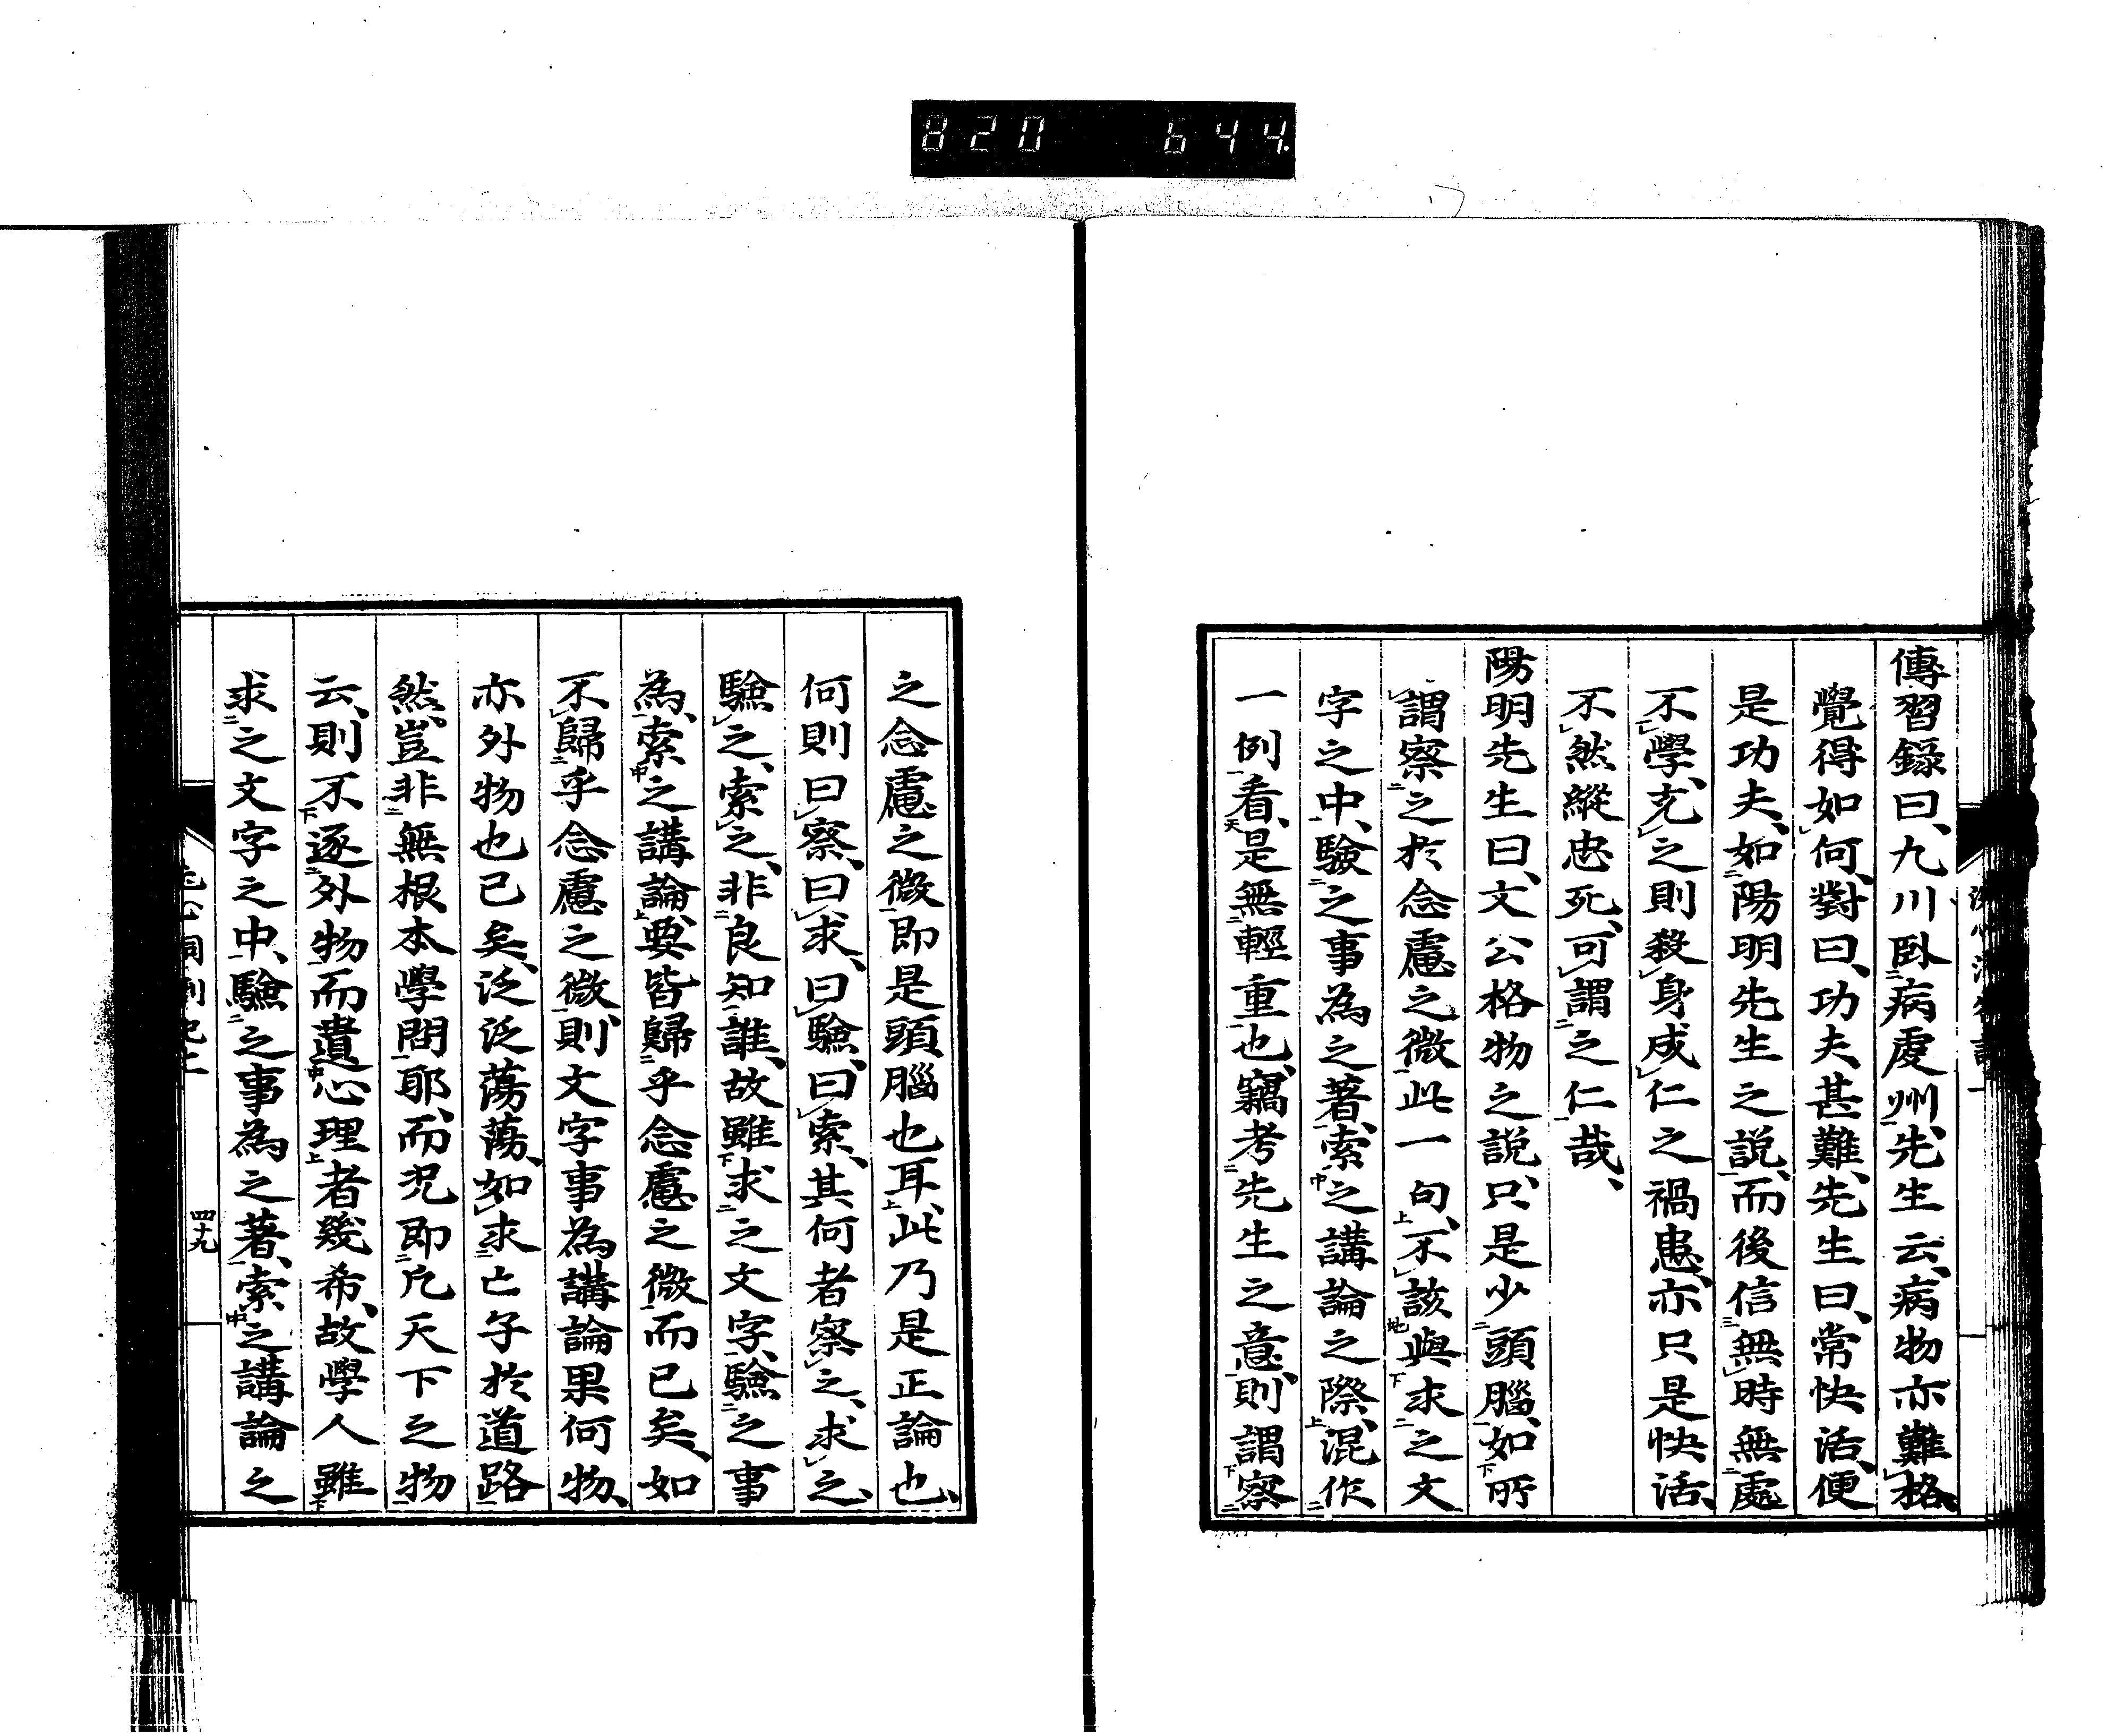 820 644.
傳習錄曰、九川臥病虔州、先生云、病物亦難格、
覺得如何、對曰、功夫甚難、先生曰、常快活、便
是功夫、如陽明先生之說、而後信無時無處
不學、克之則殺身成仁之禍患、亦只是快活、
不然縱忠死、可謂之仁哉、
陽明先生曰、文公格物之說、只是少頭腦、如所
謂察之於念慮之微、此一句、不該與求之文
字之中、驗之事為之著、索之講論之際、混作
一例看、是無輕重也、竊考先生之意、則謂察
之念慮之微即是頭腦也耳、此乃是正論也、
何則曰察、曰求、曰驗、曰索、其何者察之、求之、
驗之、索之、非良知誰、故雖求之文字、驗之事
為、索之講論、要皆歸乎念慮之微而已矣、如
不歸乎念慮之微、則文字事為講論果何物、
亦外物也已矣、泛泛蕩蕩、如求亡子於道路
然、豈非無根本學問耶、而況即凡天下之物
云、則不逐外物而遺心理者幾希、故學人雖
求之文字之中、驗之事為之著、索之講論之
四十九